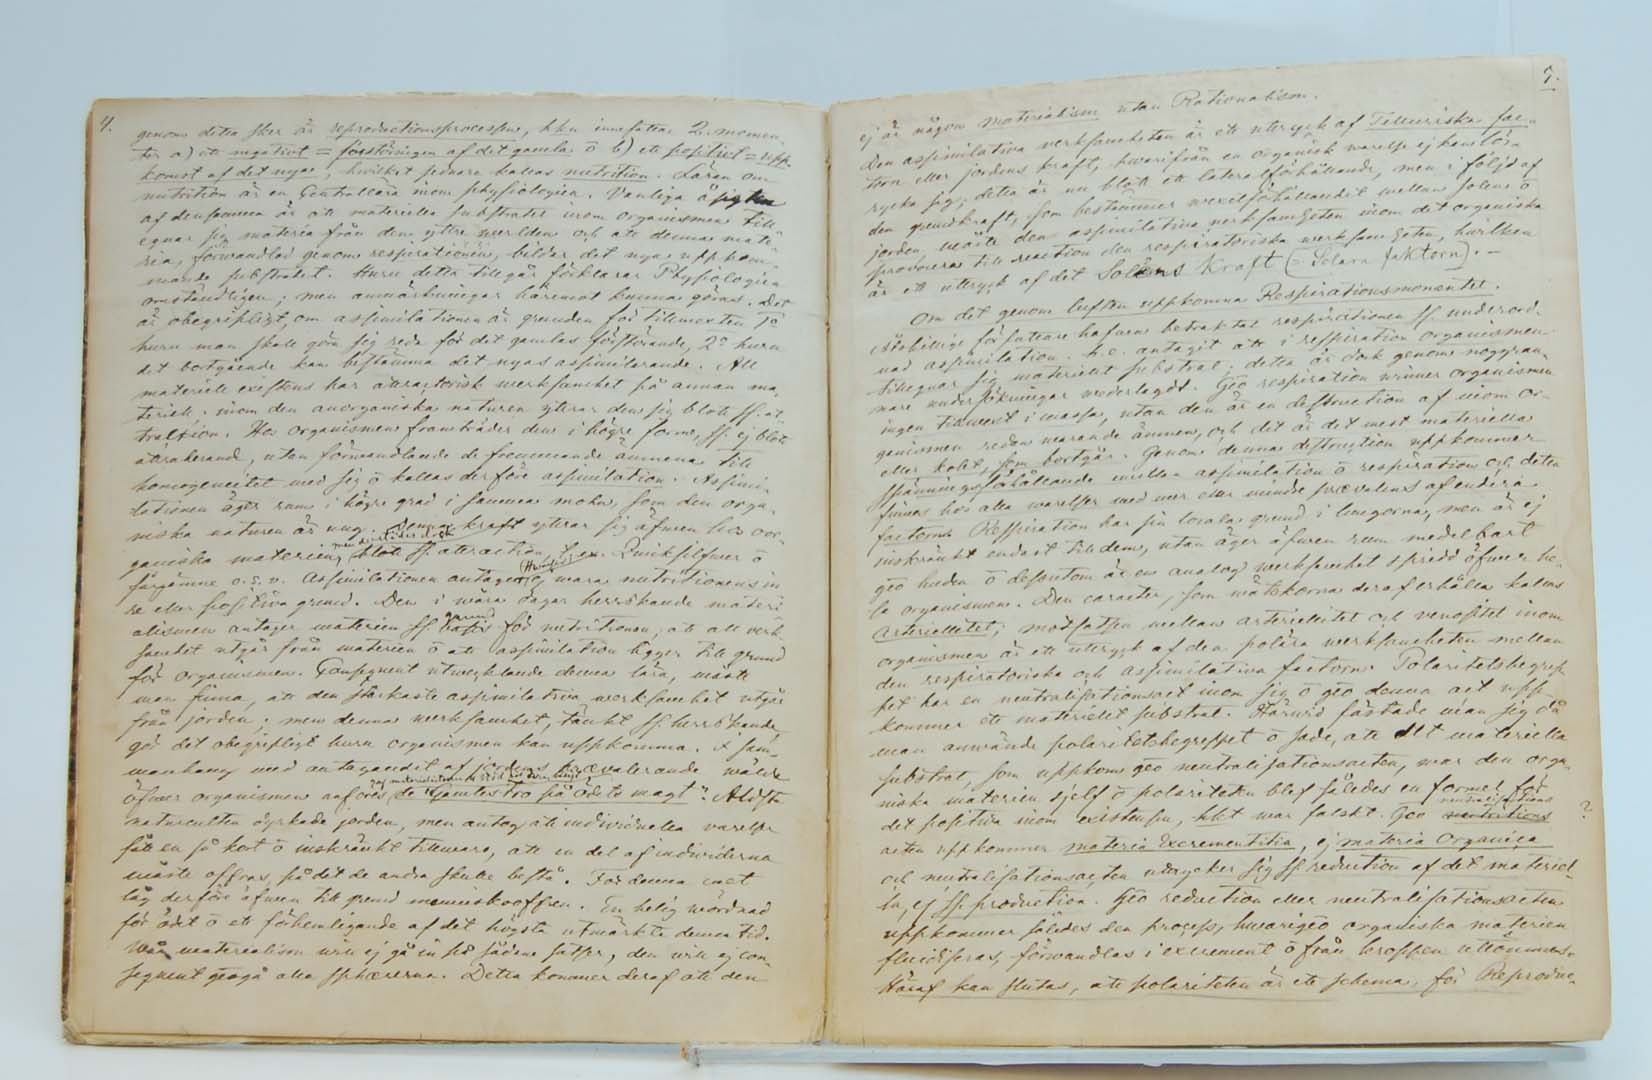 4.
genom detta sker är reproductionsprocessen, hkn innefattar 2. momen-
ter a) ett negativt = förstöringen af det gamla o b) ett positivt = upp-
komst af det nya, hvilket senare kallas nutrition. Läran om
nutrition är en Centrallära inom physiologien. Vanliga
af densamma är att materiella substratet inom organismen till-
egnar sig materia från den yttre werlden och att denna mate-
ria, förwandlad genom respirationen, bildar det nya uppkom-
mande substratet. Huru detta tillgår förklarar Physiologien
omständligen; men anmärkningar häremot kunna göras. Det
är obegripligt, om assimilationen är grunden för tillwexten 1o
huru man skall göra sig reda för det gamlas förstörande, 2o huru
det bortgående kan bestämma det nyas assimilerande. All
materiell existens har attractorisk werksamhet på annan ma-
teriell. inom den anorganiska naturen yttrar den sig blott ss. at-
traktion. Hos organismen framträder den i högre form, ss. ej blott
attraherand, utan förwandlande de fremmande ämnena till
homogeneitet med sig o kallas derföre assimilation. Assimi-
lationen äger rum i högre grad i samma mohn, som den orga-
niska naturen är ung. Denna kraft yttrar sig äfven hos oor-
ganiska materien, blott ss. attraction, t. ex. Quicksilfver o
färgämne o. s. v. Assimilationen antages ej wara nutritionens in-
re eller positiva grund. Den i wåra dagar herrskande materi-
alismen antager materien ss. basis för nutritionen, att all werk-
samhet utgår från materien o att assimilation ligger till grund
för organismen. Consequent utwecklande denna lära, måste
man finna, att den starkaste assimilativa werksamhet utgår
från jorden; men denna werksamhet, tänkt ss. herrskande,
gör det obegripligt huru organismen kan uppkomma. I sam-
manhang med antagandet af jordens prævalerande wälde
öfwer organismen anföres, de Gamlas tro på ödets magt. Äldsta
naturculten dyrkade jorden, men antog att individuella varelser
fått en så kort o inskränkt tillwaro, att en del af individerna
måste offras, på det de andra skulle bestå. För denna
låg derföre äfwen till grund menniskooffren. En helig wördnad
för ödet o ett förhemligande af det högsta utmärkte denna tid.
Wår materialism will ej gå in på sådana satser, den will ej con-
sequent gå alla sphærerna. Detta kommer deraf att den
5.
ej är någon materialism utan Rationalism.
Den assimilativa werksamheten är ett uttryck af Telluriska fac-
torn eller jordens kraft, hwarifrån en organisk warelse ej kan lös-
rycka sig; detta är nu blott ett lateralförhållande, men i följd af
den grundkraft, som bestämmer wexelförhållandet mellan solen o
jorden, måste den assimilativa werksamheten inom det organiska
provocera till reaction den respiratoriska werksamheten, hwilken
är ett uttryck af det Solens Kraft (= Solara faktorn). —
Om det genom luften uppkomna Respirationsmomentet.
Åtskillige författare hafwa betraktat respirationen ss. underord-
nad assimilation. h. e. antagit att i respiration organismen
tillegnar sig materielt substrat; detta är dock genom noggran-
nare undersökningar wederlagdt. Geo respiration winner organismen
ingen tillwext i massa, utan den är en destruction af inom or-
ganismen redan warande ämnen, och det är det mest materiella
eller kolet, som bortgår. Genom denna destruction uppkommer
spänningsförhållande mellan assimilation o respiration och detta
finnes hos alla warelser med mer eller mindre prævalens af endera
factorn. Respiration har sin locala grund i lungorna, men är ej
inskränkt endast till dem, utan äger äfwen rum medelbart
geo huden o dessutom är en analog werksamhet spridd öfwer he-
la organismen. Den caracter, som wätskorna deraf erhålla kallas
Arteriellitet; motsatsen mellan arteriellitet och venositet inom
organismen är ett uttryck af den polära werksamheten mellan
den respiratoriska och assimilativa factorn. Polaritetsbegrep-
pet har en neutralisationsact inom sig o geo denna act upp-
kommer ett materielt substrat. Härwid fästade man sig då
man anwände polaritetsbegreppet o sade, att det materiella
substrat, som uppkom geo neutralisationsacten, war den orga-
niska materien sjelf o polariteten blef således en formel för
det positiva inom existensen, hkt war falskt. Geo neutralisations ?
acten uppkommer materia Excrementitia, ej materia Organica
och neutralisationsacten uttrycker sig ss. reduction af det materiel-
la, ej ss. production. Geo reduction eller neutralisationsacten
uppkommer således den process, hwarigeo organiska materien
fluidiseras, förwandlas i excrement o från kroppen uttömmes.
Häraf kan slutas, att polariteten är ett schema för Reproduc-